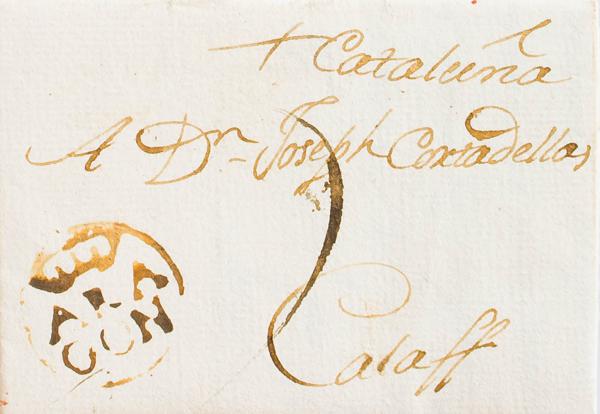 + Cataluña
A Dn. Joseph Cortadellas
Calaff